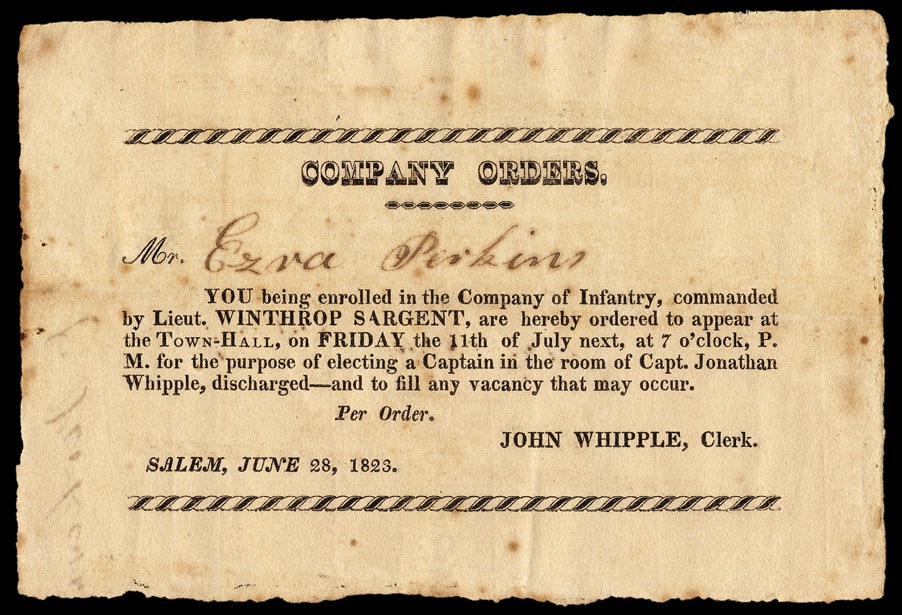 COMPANY ORDERS.
Mr. Ezra Perkins
YOU being enrolled in the Company of Infantry, commanded
by Lieut. WINTHROP SARGENT, are hereby ordered to appear at
the TOWN-HALL, on FRIDAY the 11th of July next, at 7 o'clock, P.
M. for the purpose of electing a Captain in the room of Capt. Jonathan
Whipple, discharged—and to fill any vacancy that may occur.
Per Order.
JOHN WHIPPLE, Clerk.
SALEM, JUNE 28, 1823.